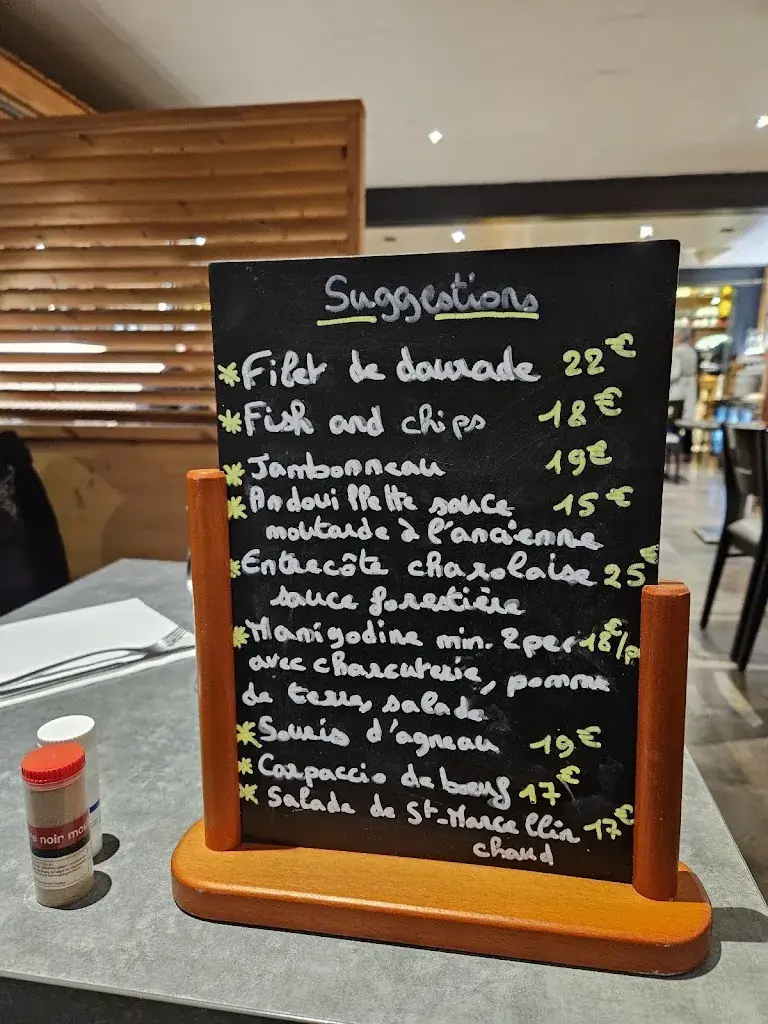 Suggestions
* Filet de daurade 22€
* Fish and chips 18€
* Jambonneau 19€
* Andouillette sauce 15€
moutarde à l'ancienne
* Entrecôte charolaise 25€
sauce forestière
* Manigodine min. 2per 18€/p
avec charcuterie, pomme
de terre, salade
* Souris d'agneau 19€
* Carpaccio de bœuf 17€
* Salade de St-Marcellin 17€
chaud
noir mou